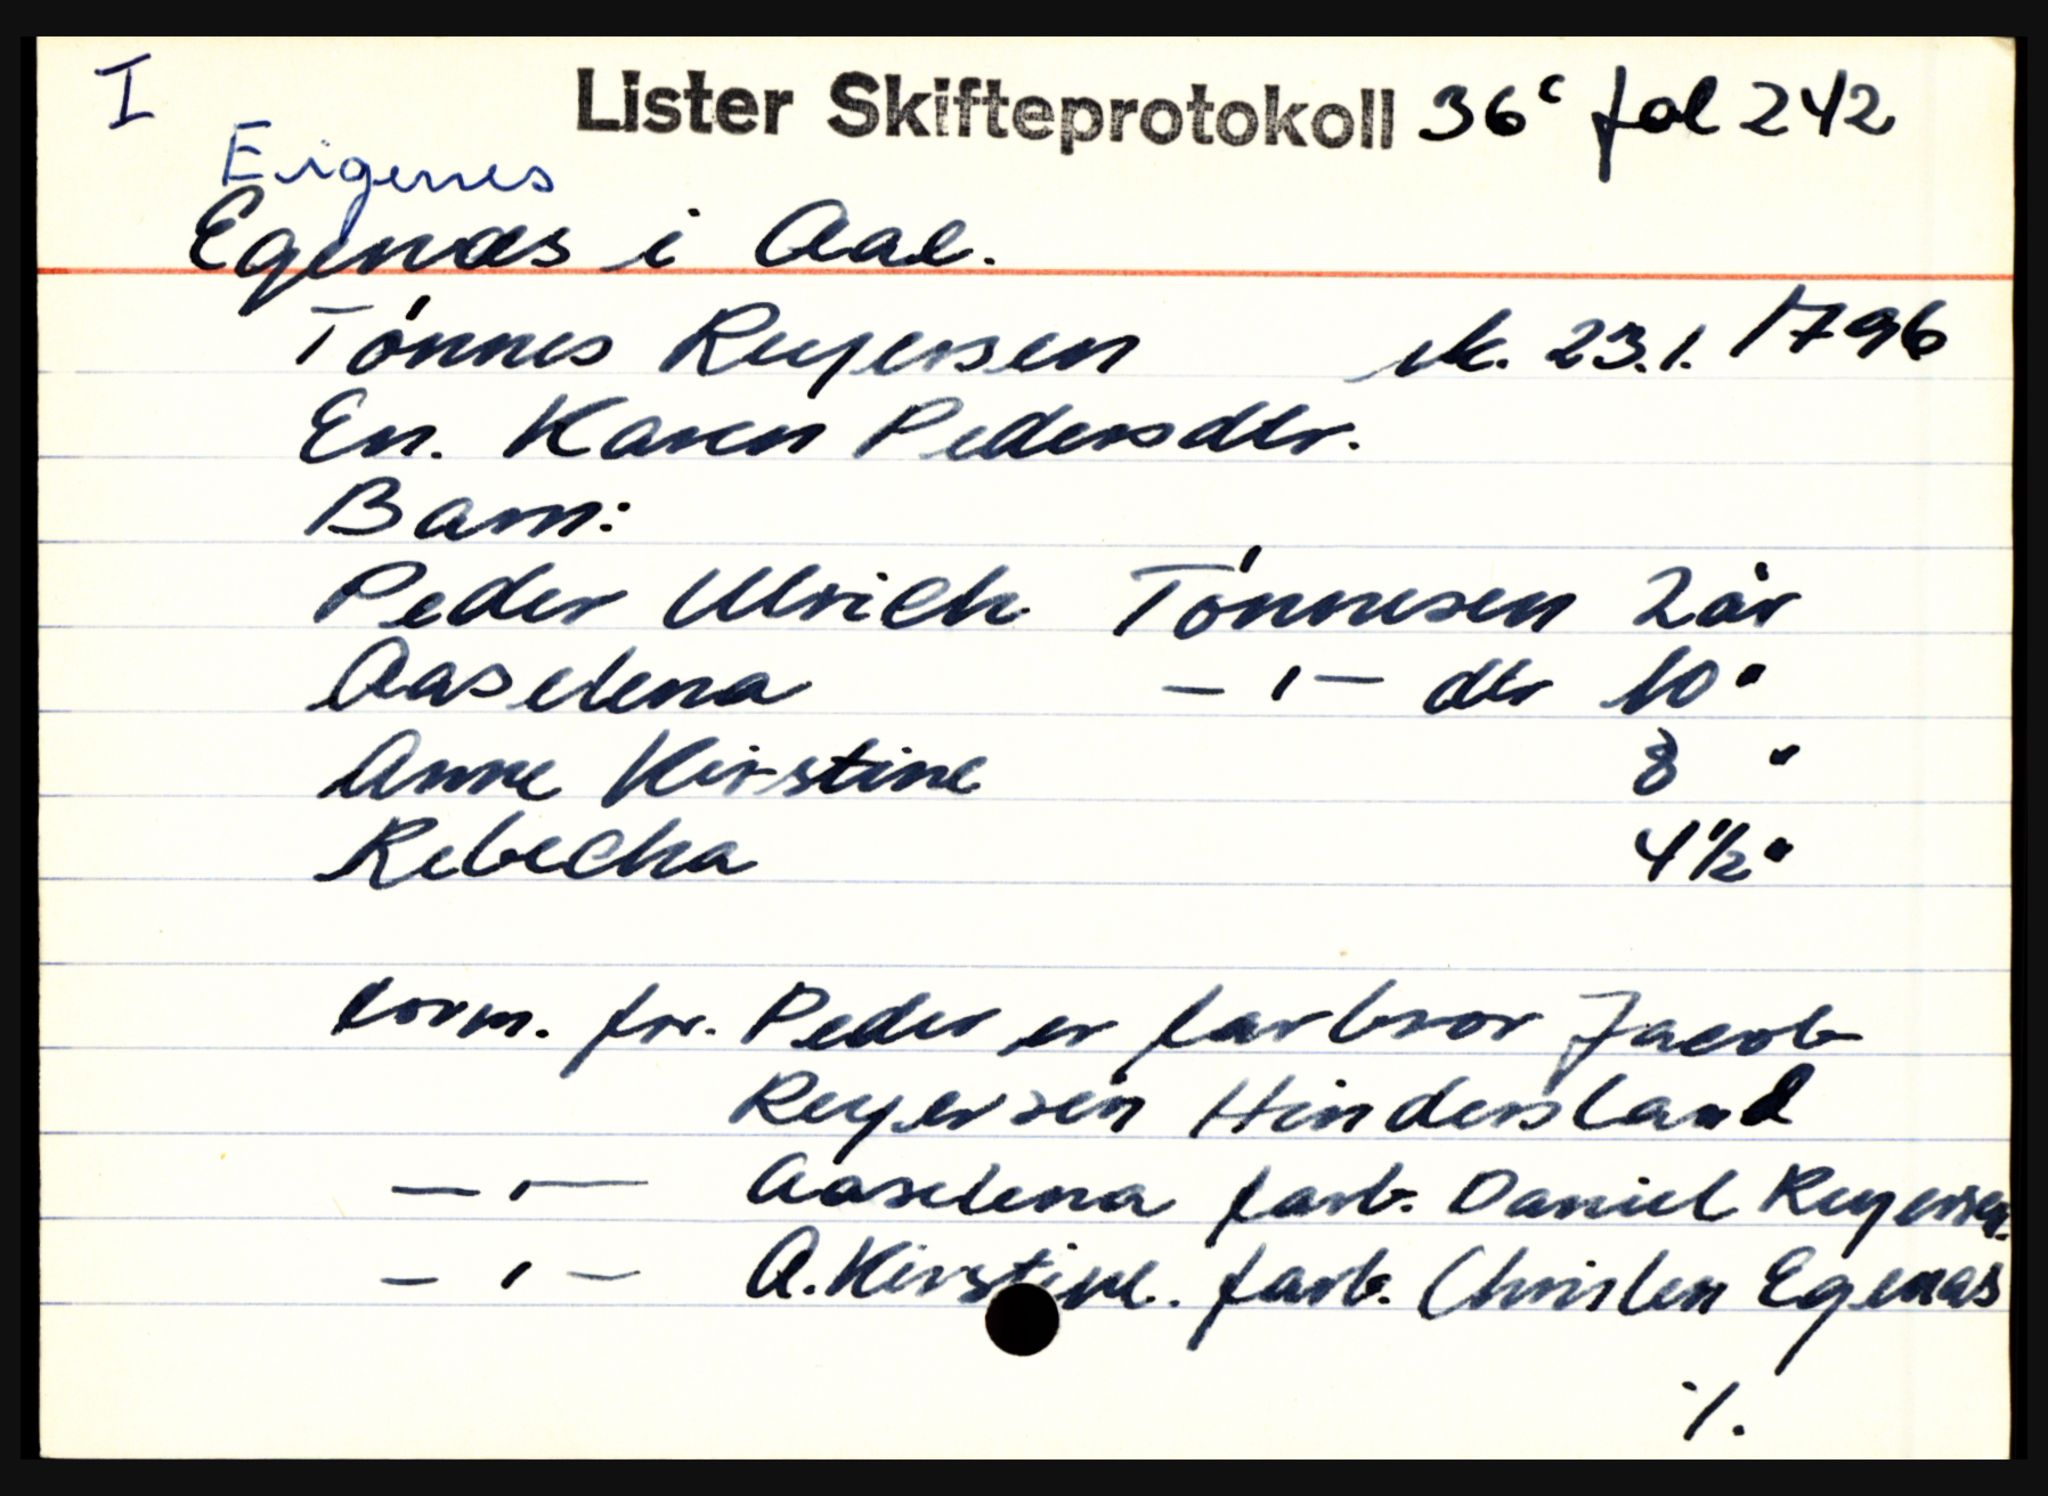 I
Lister Skifteprotokoll 36c fol 242
Eigenes
Egenæs i Aal.
Tønnes Reyersen sk. 23.1. 1796
En. Karen Pedersdtr.
Barn:
Peder Ulrich Tønnesen 2 år
Aaselena — " — dtr 10 "
Anne Kirstine 8 "
Rebecha 4 1/2 "
form. for. Peder er farbror Jacob
Reyersen Hindersland
— " — Aaselena farb. Daniel Reyersen.
— " — A. Kirstine. farb. Christen Egenæs
·/.